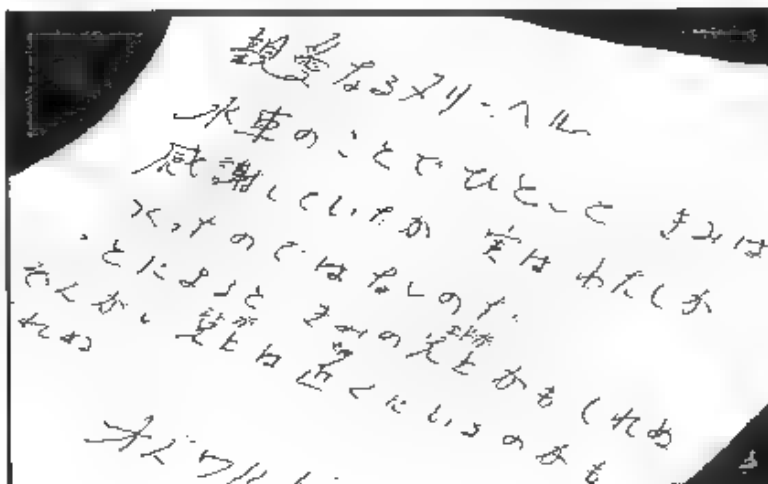 親愛なるメリー・ヘル
水車のことでひとこと きみは
感謝していたが 実はわたしが
つくったのではないのだ.
ことによると きみの かもしれぬ
ぞんがい は近くにいるのかも
しれぬ
オズワルド